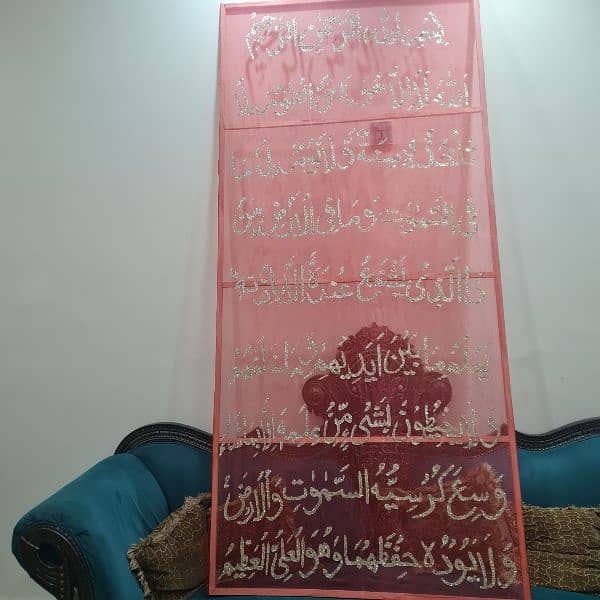 بسم الله الرحمن الرحيم
الله لا اله الا هو الحي القيوم لا
تاخذه سنة ولا نوم له ما
في السموت وما في الارض من
ذا الذي يشفع عنده الا باذنه
يعلم ما بين ايديهم وما خلفهم
ولا يحيطون بشيء مِّنْ علمه الا بما شاء
وَسِعَ كُرْسِيُّهُ السَّمٰوٰتِ وَالْاَرْضَ
وَلَا يَـُٔوْدُهٗ حِفْظُهُمَا وَهُوَ الْعَلِيُّ الْعَظِيْمُ